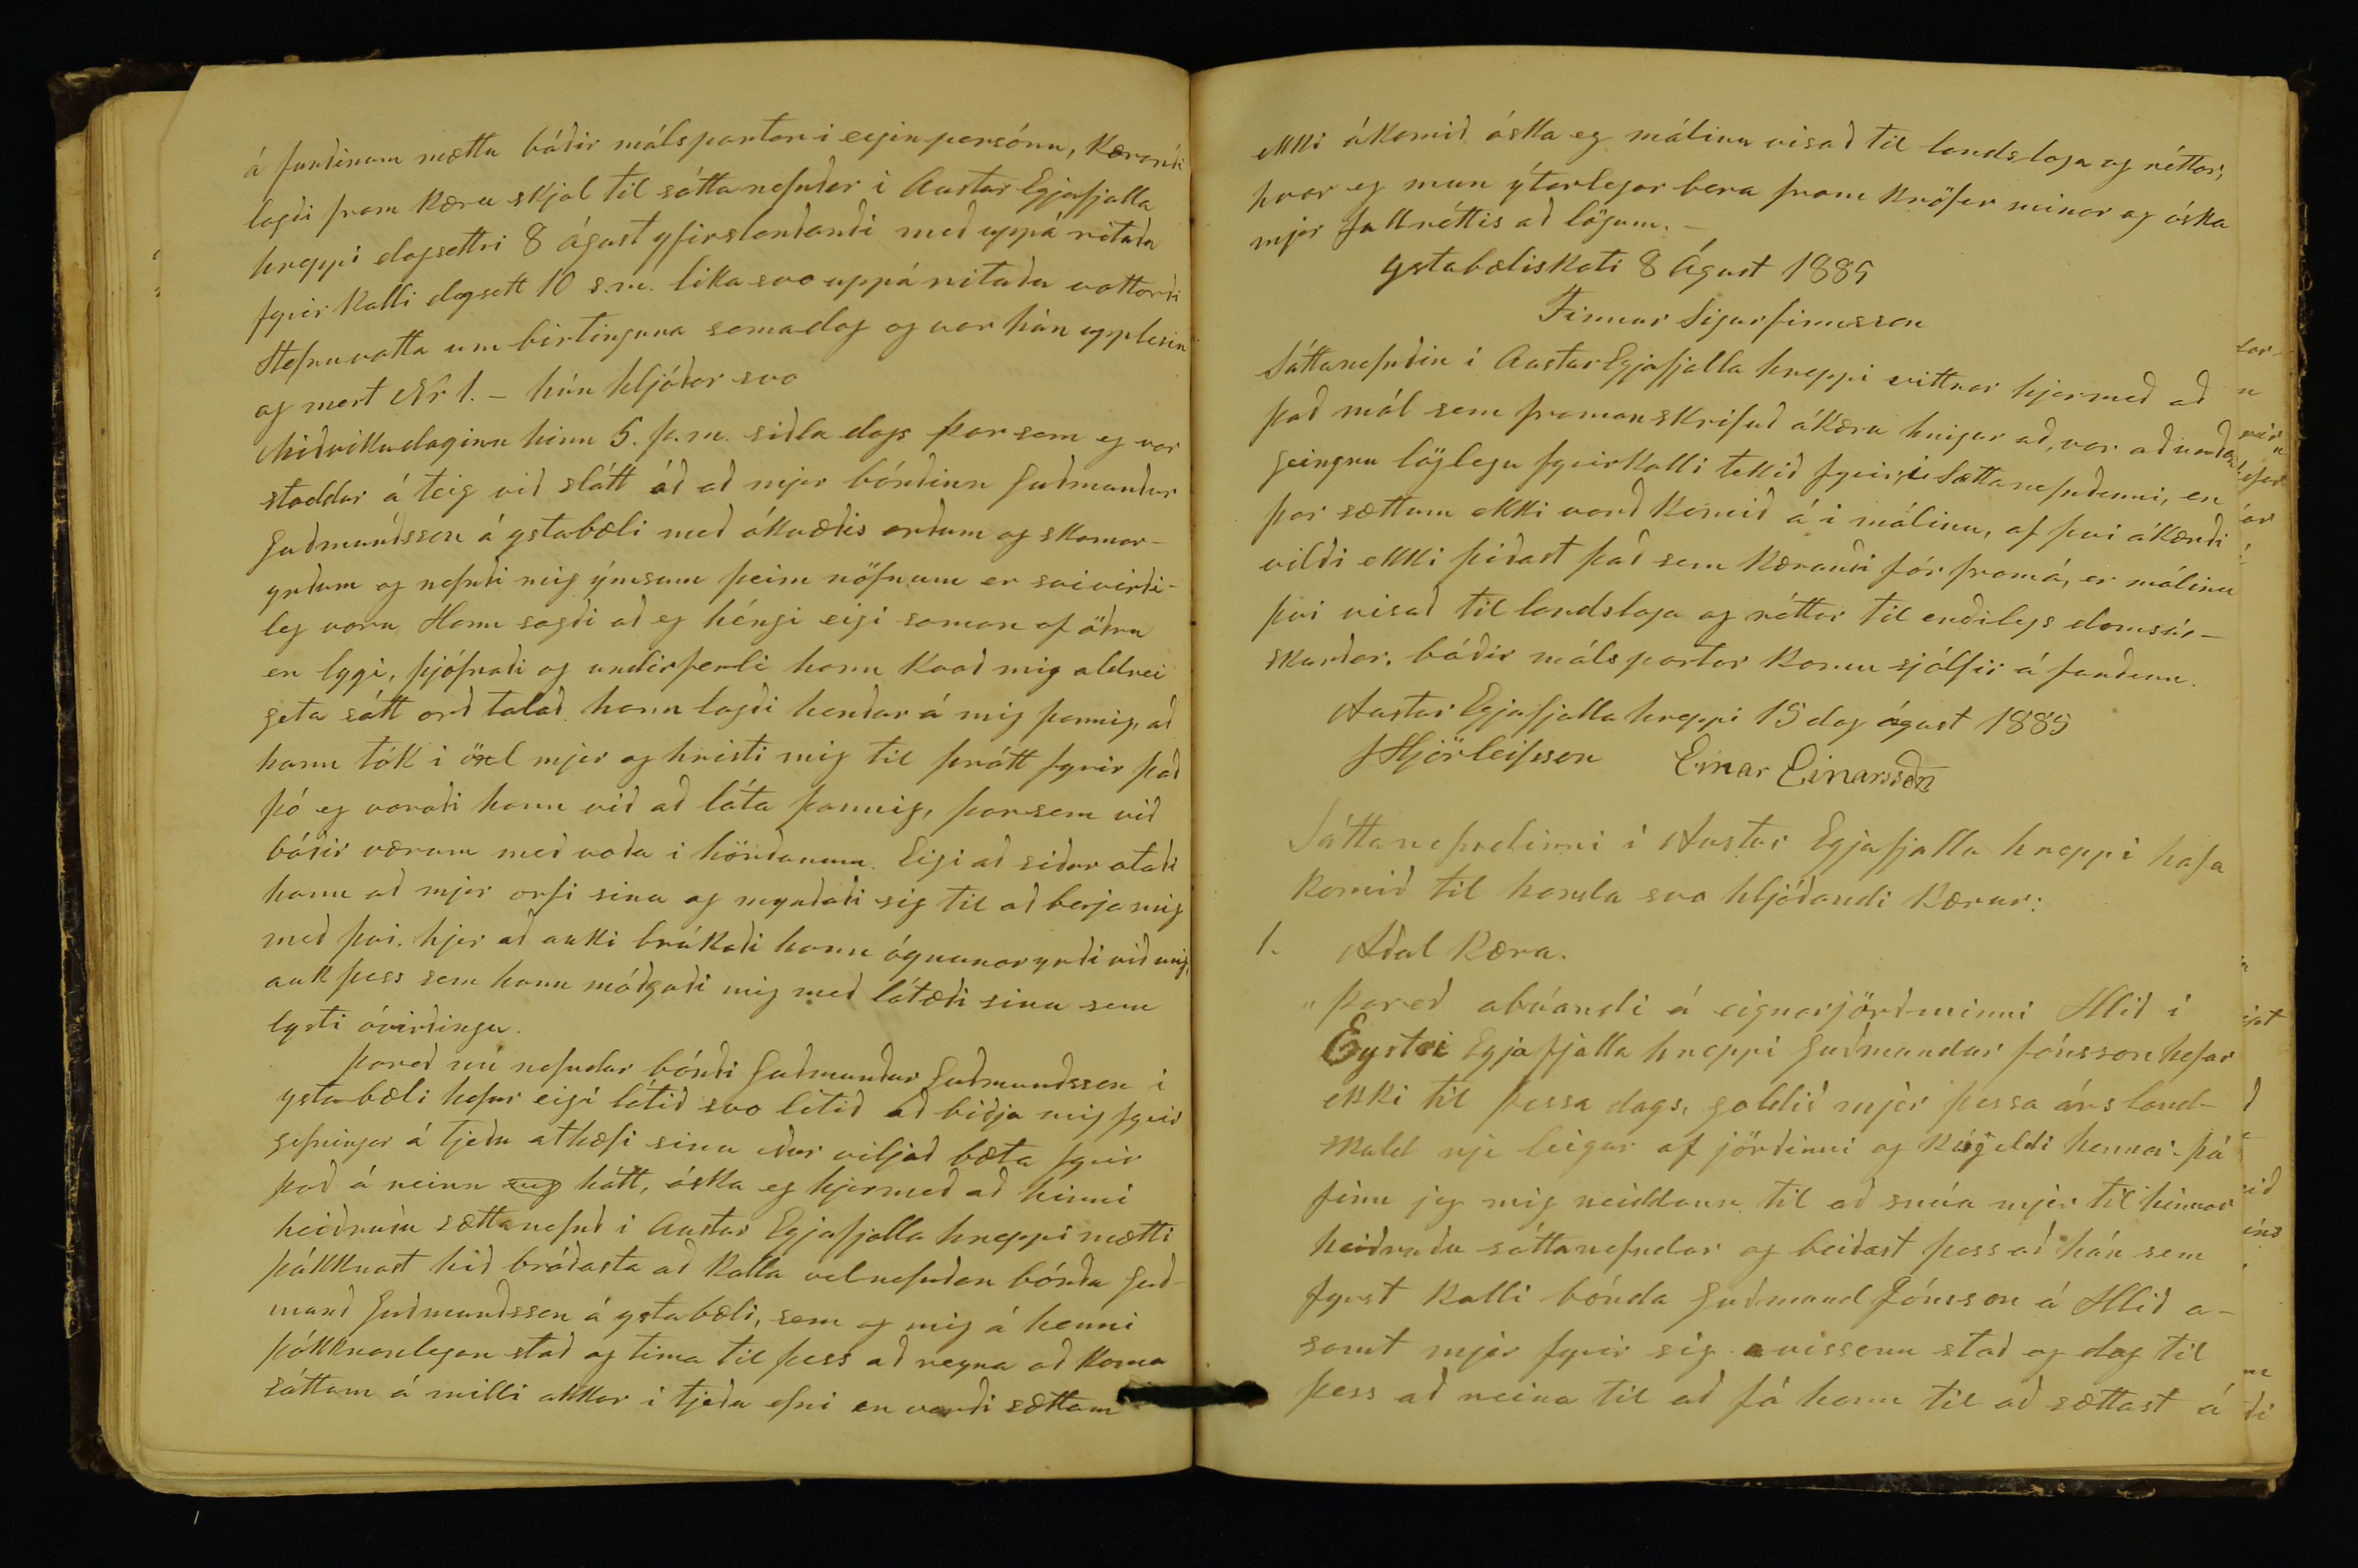 á fundinum mættu báðir málspartar i eiginpersónu, Kærandi
lagði fram Kæru skjal til sáttanefndar i Austur Eyjafjalla
hreppi dagsettri 8 ágúst yfirstandandi með uppá ritaðu
fyrir Kalli dagsett 10 s.m. lika svo uppá ritaðu vottorði
stefnuvotta um birtinguna samadag og var hún upplesin
og mert Nr 1. – hún hljóðar svo
Miðvikudaginn hinn 5. þ.m. siðla dags þar sem eg var
staddur á teig við slátt óð að mjer bóndinn Guðmundur
Guðmundsson á ystabæli með ókvæðis orðum og skamar-
yrðum og nefndi mig ýmsum þeim nöfnum er svivirði-
leg voru Hann sagði að eg héngi eigi saman af öðru
en lygi, þjófnaði og undirferli hann Kvað mig aldrei
geta sátt orð talað hann lagði hendur á mig þannig, að
hann tók i öxl mjer og hristi mig til þrátt fyrir það
þó eg varaði hann við að láta þannig, þarsem við
báðir værum með voða i höndunum. Eigi að siður otaði
hann að mjer orfi sinu og myndaði sig til að berja mig
með þvi, hjer að auki brúkaði hann ógnunaryrði við mig,
auk þess sem hann móðgaði mig með látæði sinu sem
lysti óvirðingu.
Þareð nú nefndur bóndi Guðmundur Guðmundsson i
ystabæli hefur eigi látið svo litið að biðja mig fyrir
gefningar á tjeðu athæfi sinu eður viljað bæta fyrir
það á neinn hátt, óska eg hjermeð að hinni
heiðruðu sættanefnd i Austur Eyjafjalla hreppi mætti
þókknast hið bráðasta að Kalla velnefndan bónda Guð-
mund Guðmundsson á ystabæli, sem og mig á henni
þókknanlegan stað og tima til þess að reyna að Koma
sáttum á milli okkar i tjeðu efni en varði sættum
ekki ákomið óska eg málinu visað til landslaga og réttar,
hvar eg mun ýtarlegar bera fram Kröfur minar og óska
mjer fullréttis að lögum. –
ystabæliskoti 8 Ágúst 1885
Finnur Sigurfinnsson
Sáttanefndin i Austur Eyjafjalla hreppi vittnar hjermeð að
það mál sem framanskrifuð ákæra hnigur að, var aðundan
geingnu löglegu fyrirkalli tekið fyrir i Sættanefndinni, en
þar sættum ekki varð Komið á i málinu, af þvi ákærði
vildi ekki þiðast það sem Kærandi fór framá, er málinu
þvi visað til landslaga og réttar til endilegs domsúr-
skurðar. báðir málspartar Komu sjálfir á fundinn.
Austur Eyjafjalla hreppi 15 dag ágúst 1885
JHjörleifsson Einar Einarsson
Sáttanefndinni i Austur Eyjafjalla hreppi hafa
Komið til handa svo hljóðandi Kærur:
1. Aðal Kæra.
„Þareð ábúandi á eignarjörð minni Hlið i
Eystri Eyjafjalla hreppi Guðmundur Jónsson hefur
ekki til þessa dags, goldið mjer þessa árs land-
skuld nje leigur af jörðinni og Kúgildi hennar. þá
finn jeg mig neiddann til að snúa mjer til hinnar
heiðruðu sáttanefndar og beiðast þess að hún sem
fyrst Kalli bónda Guðmund Jónsson á Hlið á-
samt mjer fyrir sig á vissann stað og dag til
þess að reina til að fá hann til að sættast á